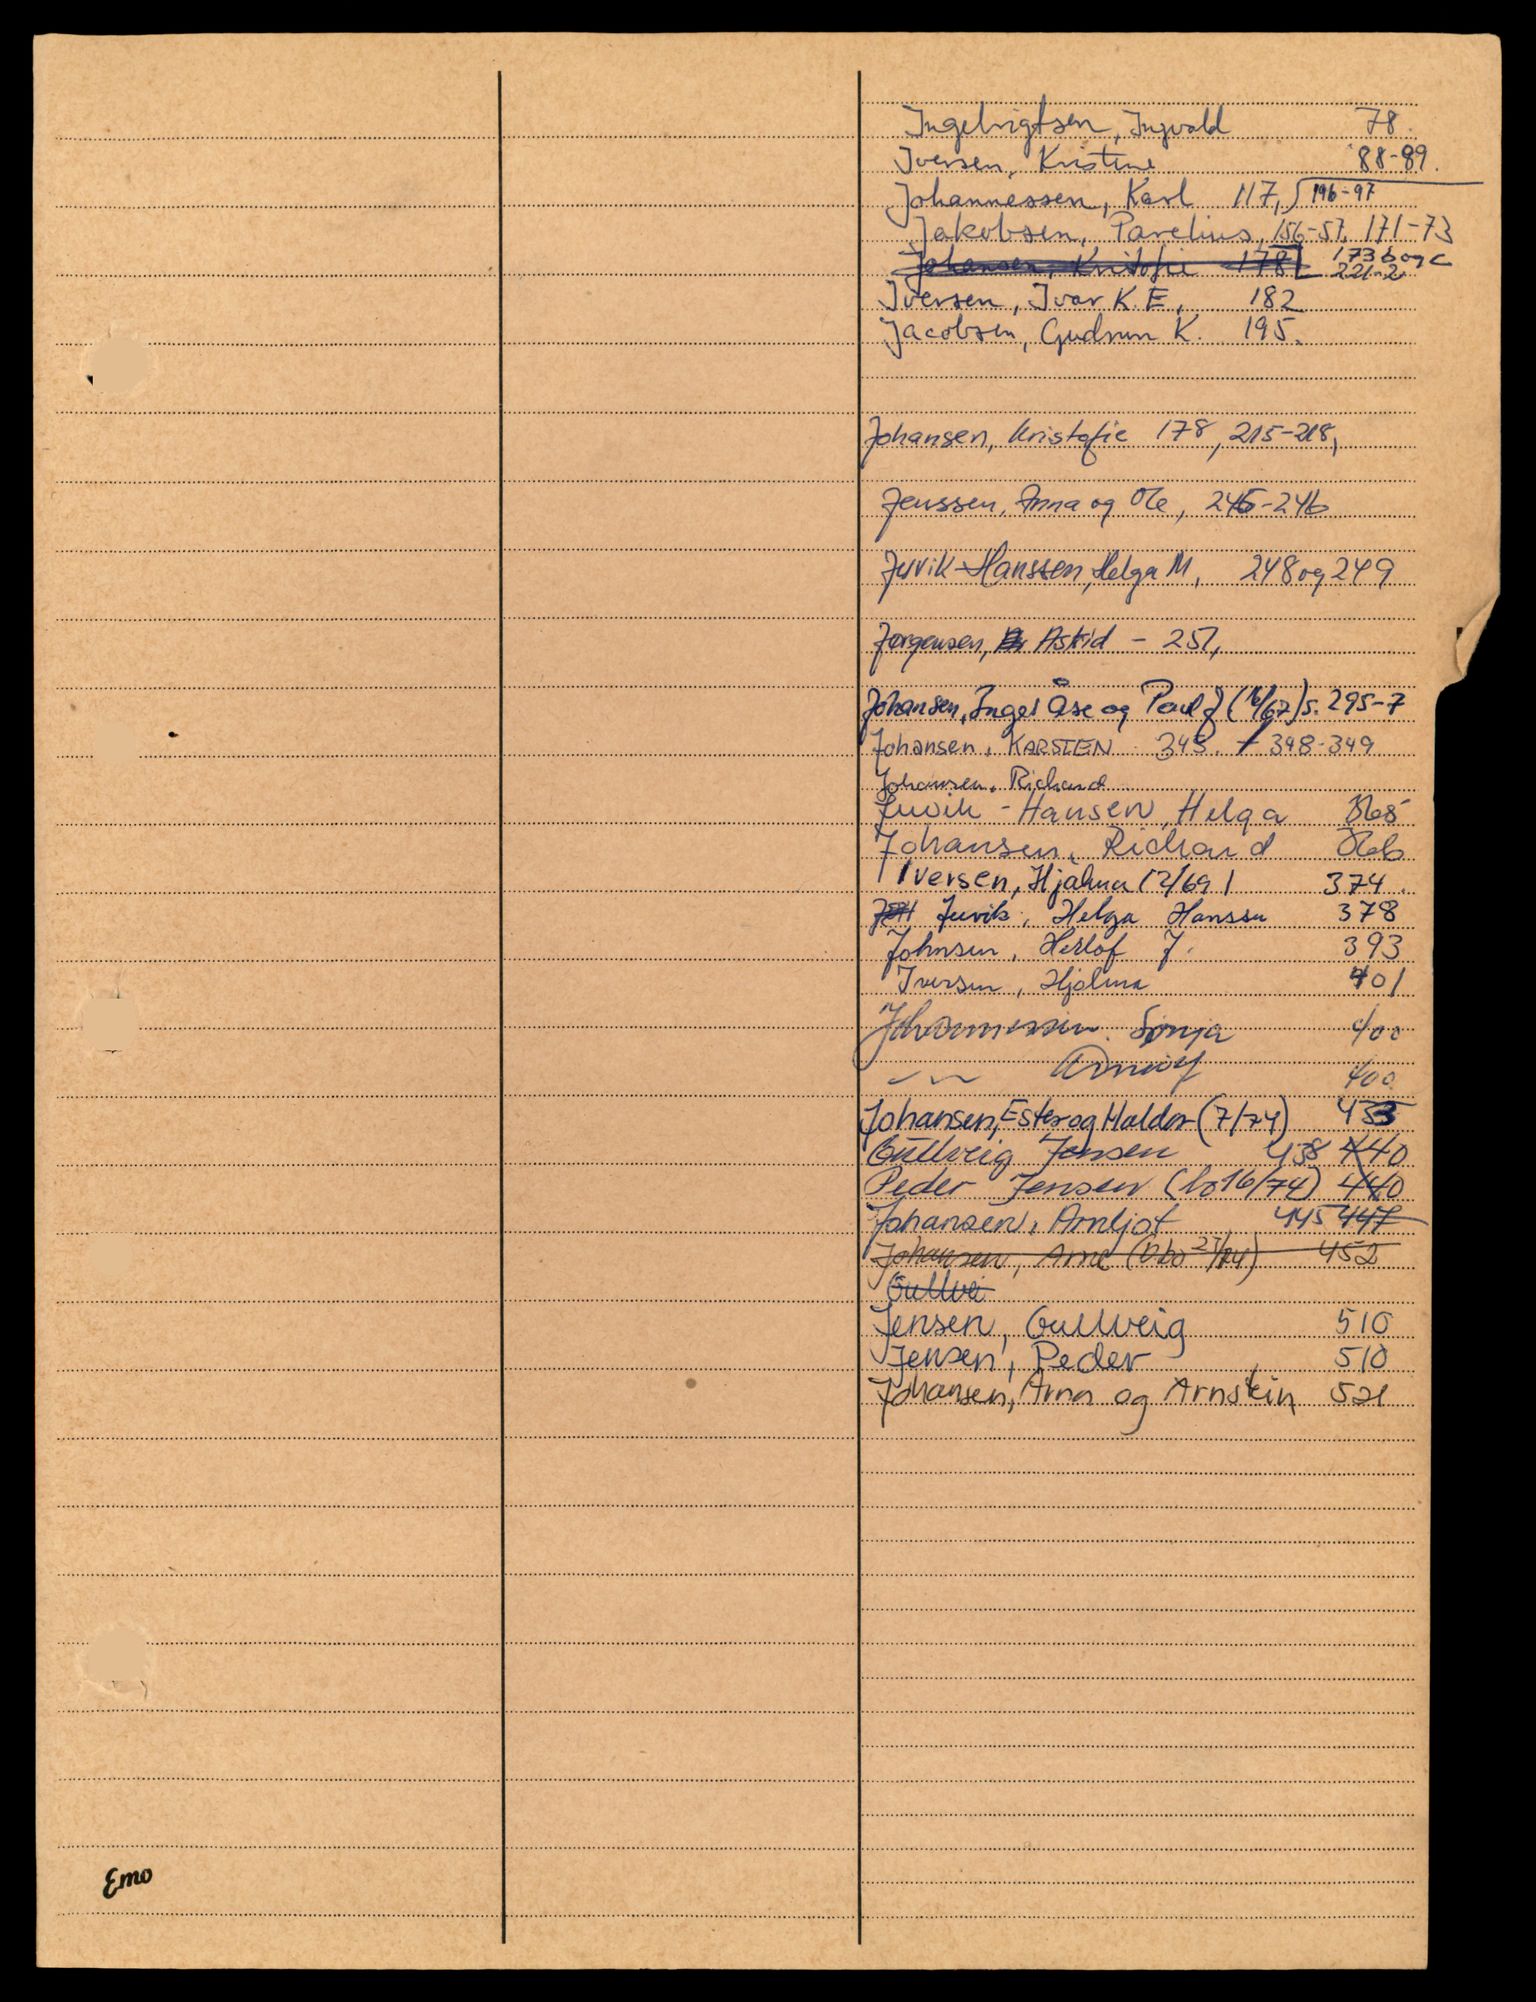 Ingebrigtsen, Ingvald 78.
Iversen, Kristine 88-89.
Johannessen, Karl 117, 196-97
Jakobsen, Parelius, 156-57, 171-73
173 b og c
Johansen, Kristofie 178 221-2
Iversen, Ivar K. E. 182
Jacobsen, Gudrun K. 195.
Johansen, Kristofie 178, 215-218,
Jenssen, Anna og Ole, 245-246
Juvik-Hanssen, Helga M, 248 og 249
Jørgensen, Astrid - 251,
Johansen, Inger Åse og Paul J (16/67) s. 295-7
Johansen, KARSTEN 343. + 348-349
Johansen, Richard
Juvik-Hansen, Helga 365
Johansen, Richard 366
Iversen, Hjalmar (2/69) 374.
Juvik, Helga Hanssen 378
Johnsen, Herlof J. 393
Iversen, Hjalmar 401
Johannessen, Sonja 400
Arnulf 400
Johansen, Ester og Haldor (7/74) 433
Gullveig Jensen 438 440
Peder Jensen (bo 16/74) 440
Johansen, Arnljot 445 447
Johansen, Arne (Dbo 27/74) 452
Gullvei
Jensen, Gullveig 510
Jensen, Peder 510
Johansen, Arna og Arnstein 521
Emo